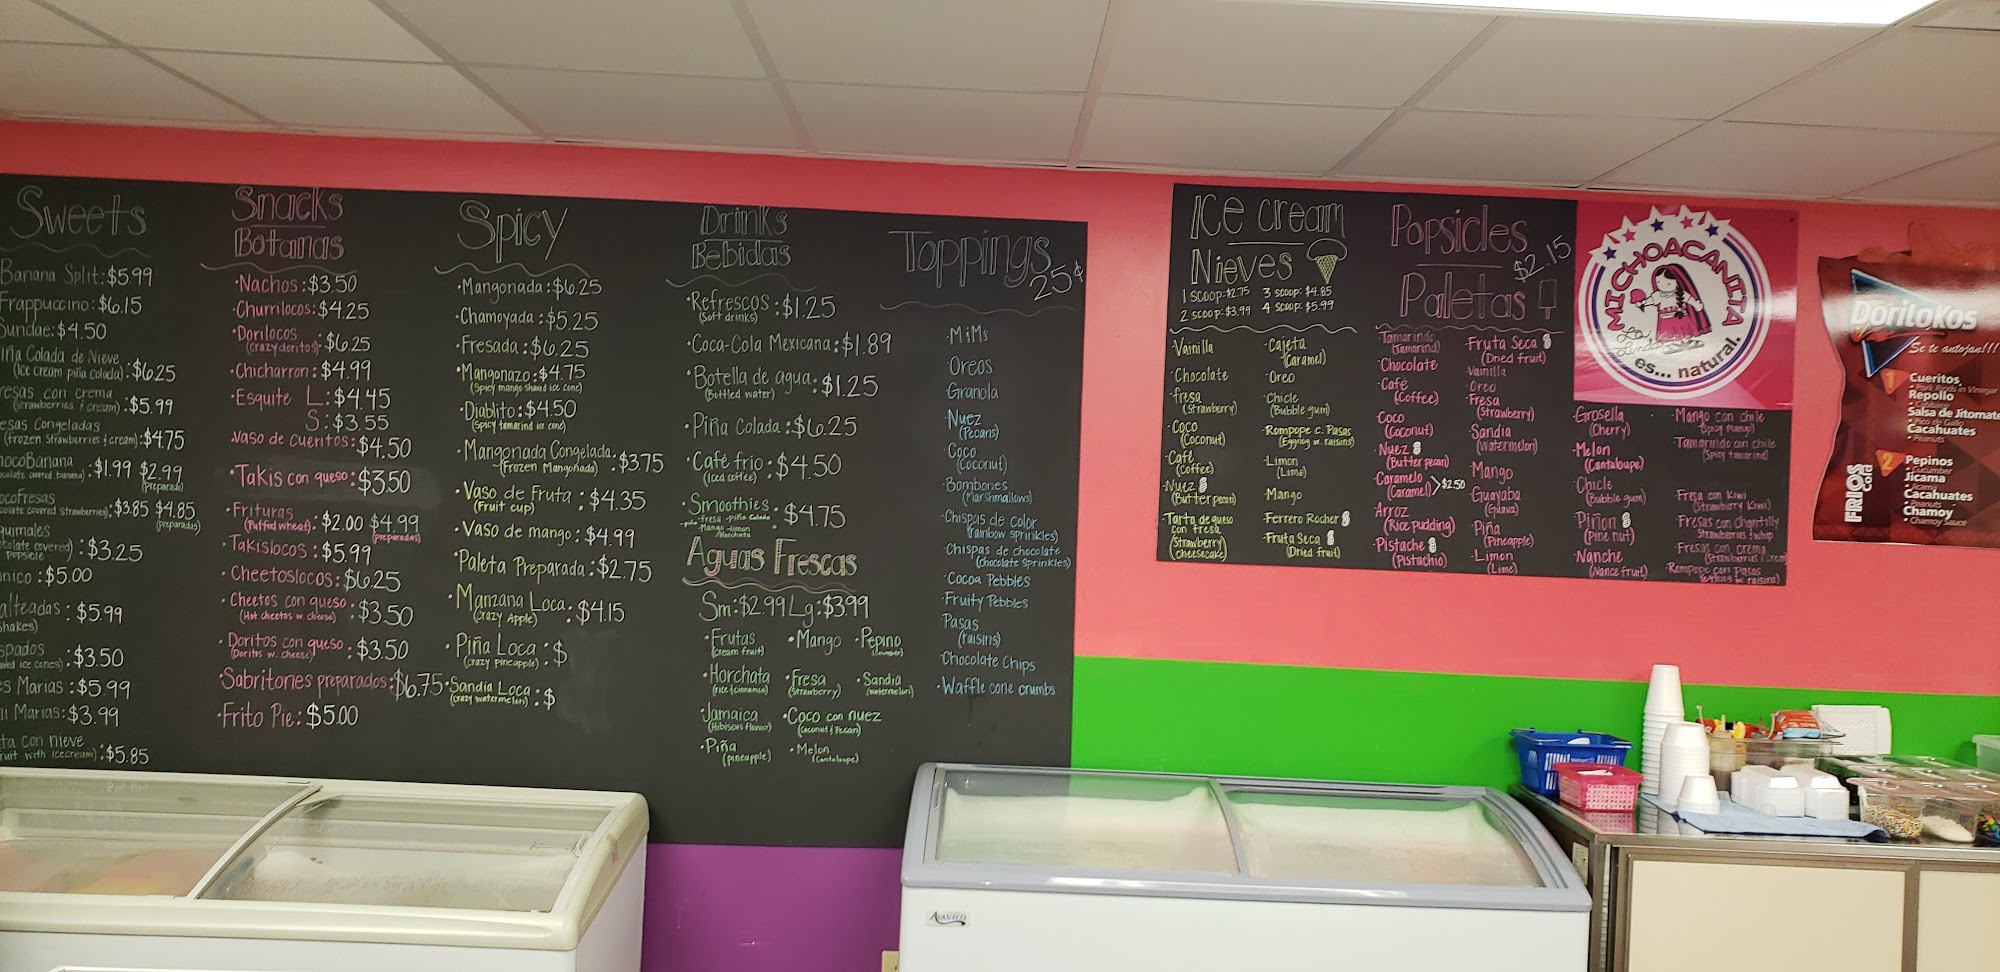 Sweets
Banana Split: $5.99
Frappuccino: $6.15
Sundae: $4.50
Piña Colada de Nieve
(Ice cream piña colada): $6.25
esas con crema
(strawberries & cream): $5.99
esas Congeladas
(frozen strawberries & cream): $4.75
hocoBanana
colate covered banana) : $1.99 $2.99
(preparado)
ocoFresas
colate covered strawberries): $3.85 $4.85
(preparadas)
quimales
colate covered)
popsicle : $3.25
nico: $5.00
alteadas
hakes) : $5.99
spados
ved ice cones) : $3.50
es Marias: $5.99
ni Marias: $3.99
ta con nieve
ruit with icecream) : $5.85
Snacks
Botanas
·Nachos: $3.50
·Churrilocos: $4.25
·Dorilocos
(crazy doritos): $6.25
·Chicharron: $4.99
·Esquite L: $4.45
S: $3.55
·Vaso de Cueritos: $4.50
·Takis con queso: $3.50
·Frituras
(Puffed wheat): $2.00 $4.99
(preparadas)
·Takislocos: $5.99
·Cheetoslocos: $6.25
·Cheetos con queso
(Hot cheetos w. cheese) : $3.50
·Doritos con queso
(Doritos w. cheese) : $3.50
·Sabritones preparados: $6.75
·Frito Pie: $5.00
Spicy
·Mangonada: $6.25
·Chamoyada: $5.25
·Fresada: $6.25
·Mangonazo: $4.75
(Spicy mango shaved ice cone)
·Diablito: $4.50
(Spicy tamarind ice cone)
·Mangonada Congelada
(Frozen Mangonada) : $3.75
·Vaso de Fruta
(Fruit cup) : $4.35
·Vaso de mango: $4.99
·Paleta Preparada: $2.75
·Manzana Loca
(Crazy Apple) : $4.15
·Piña Loca
(crazy pineapple) : $
·Sandia Loca
(crazy watermelon) : $
Drinks
Bebidas
·Refrescos
(Soft drinks) : $1.25
·Coca-Cola Mexicana: $1.89
·Botella de agua
(Bottled water) : $1.25
·Piña Colada: $6.25
·Café frio
(Iced coffee) : $4.50
·Smoothies : $4.75
-fresa -Piña Colada
-Mango -limon
-Horchata
Aguas Frescas
Sm: $2.99 Lg: $3.99
·Frutas
(cream fruit)
·Mango
·Pepino
(cucumber)
·Horchata
(rice & cinnamon)
·Fresa
(strawberry)
·Sandia
(watermelon)
·Jamaica
(Hibiscus flower)
·Coco con nuez
(coconut & Pecan)
·Piña
(pineapple)
·Melon
(Cantaloupe)
Toppings
25¢
·M&Ms
·Oreos
Granola
·Nuez
(Pecans)
·Coco
(coconut)
·Bombones
(Marshmallows)
·Chispas de color
(rainbow sprinkles)
·Chispas de chocolate
(chocolate sprinkles)
·Cocoa Pebbles
·Fruity Pebbles
·Pasas
(raisins)
·Chocolate Chips
·Waffle cone crumbs
Ice cream
Nieves
1 scoop: $2.75 3 scoop: $4.85
2 scoop: $3.99 4 scoop: $5.99
·Vainilla
·Chocolate
·fresa
(Strawberry)
·Coco
(Coconut)
·Café
(Coffee)
·Nuez
(Butter pecan)
·Tarta de queso
con fresa
(Strawberry
cheesecake)
·Cajeta
(Caramel)
·Oreo
·Chicle
(Bubble gum)
·Rompope c. Pasas
(Eggnog w. raisins)
·Limon
(Lime)
·Mango
·Ferrero Rocher
·Fruta Seca
(Dried fruit)
Popsicles
Paletas
$2.15
·Tamarindo
(Tamarind)
·Chocolate
·Café
(Coffee)
·Coco
(Coconut)
·Nuez
(Butter pecan)
·Caramelo
(Caramel) >$2.50
·Arroz
(Rice pudding)
·Pistache
(Pistachio)
·Fruta Seca
(Dried fruit)
·Vainilla
·Oreo
·Fresa
(Strawberry)
·Sandia
(Watermelon)
·Mango
·Guayaba
(Guava)
·Piña
(Pineapple)
·Limon
(Lime)
·Grosella
(Cherry)
·Melon
(Cantaloupe)
·Chicle
(Bubble gum)
·Piñon
(Pine nut)
·Nanche
(Nance fruit)
·Mango con chile
(Spicy mango)
·Tamarindo con chile
(Spicy tamarind)
·Fresa con Kiwi
(Strawberry Kiwi)
·Fresas con chantilly
(Strawberries & whip)
·Fresas con crema
(Strawberries & cream)
·Rompope con Pasas
(eggnog w. raisins)
MICHOACANITA
es... natural.
DoriloKos
Se te antojan!!!
1 Cueritos
• Pork Rinds in Vinegar
Repollo
• Cabbage
Salsa de Jitomate
• Pico de Gallo
Cacahuates
• Peanuts
2 Pepinos
• Cucumber
Jicama
• Jicama
Cacahuates
• Peanuts
Chamoy
• Chamoy Sauce
FRIOS
Cold
AVANTCO